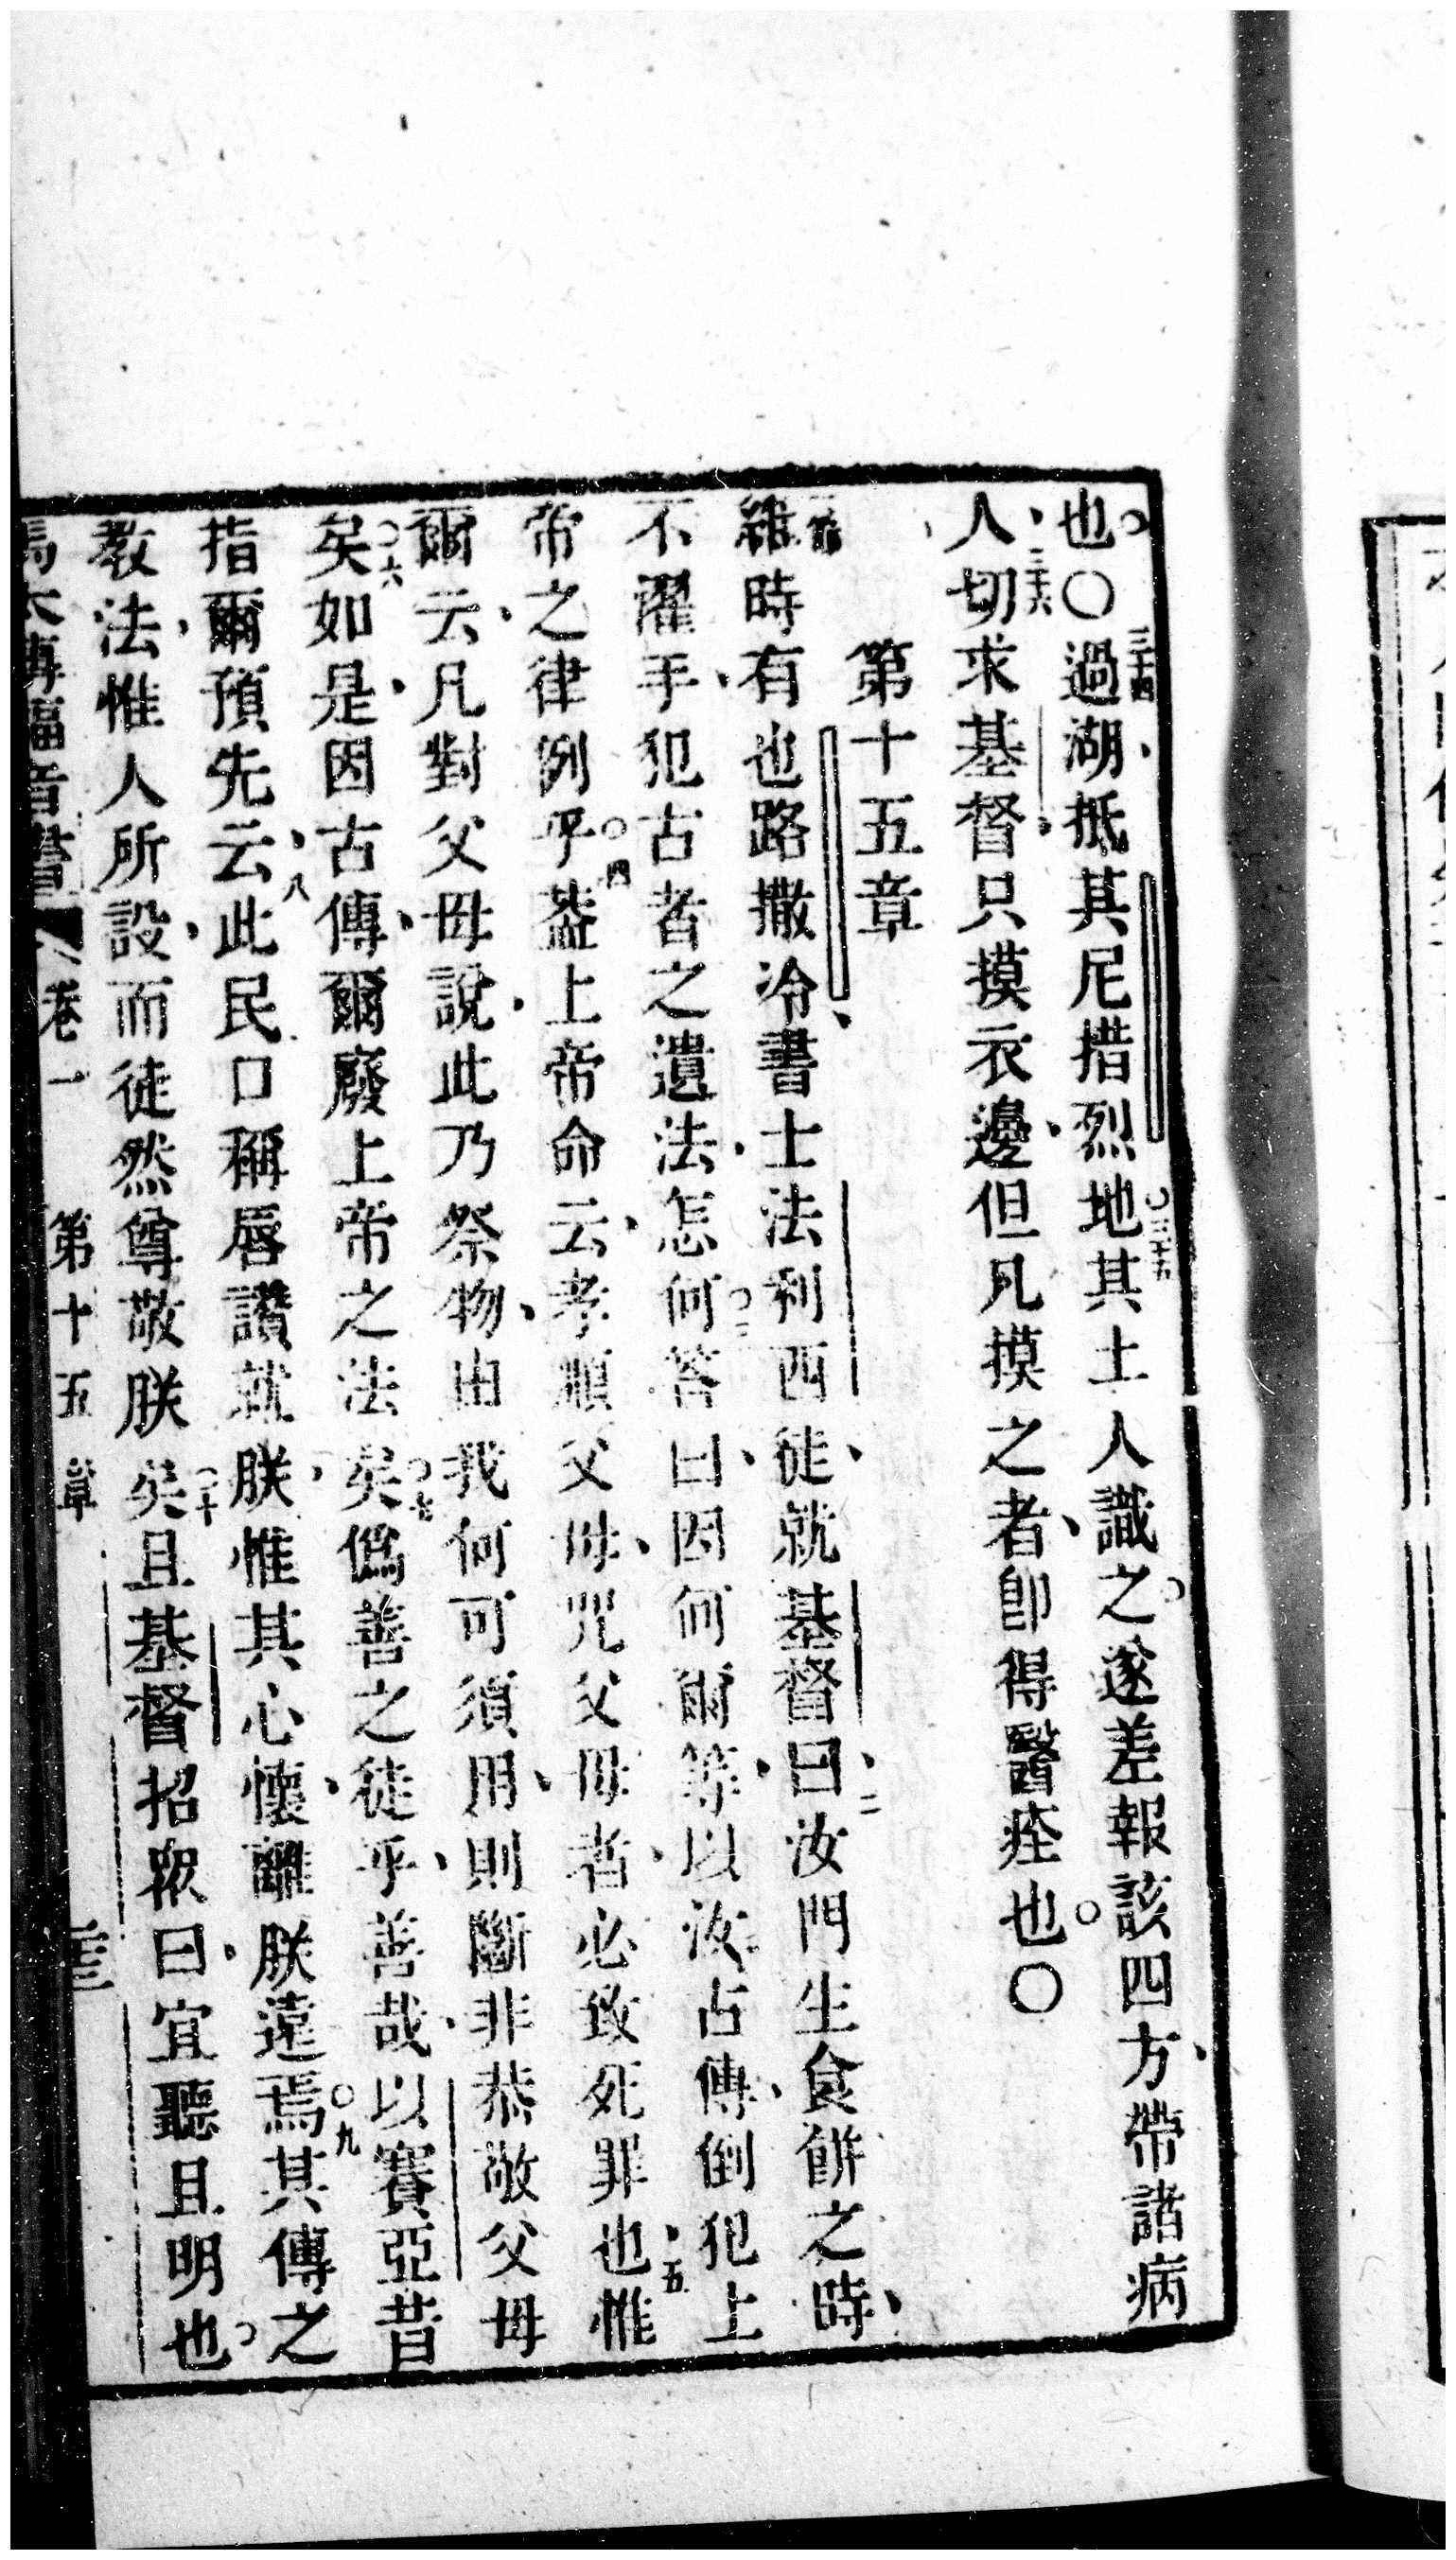 也○三十四過湖、抵其尼措烈地。三十五其土人識之。遂差報該四方、帶諸病
人、三十六切求基督、只摸衣邊、但凡摸之者、卽得醫痊也。○
第十五章
一節維時有也路撒冷、書士法利西徒、就基督曰、二汝門生食餅之時、
不濯手、犯古者之遺法、怎何。三答曰、因何爾等、以汝古傳、倒犯上
帝之律例乎。四葢上帝命云、孝順父母、咒父母者、必致死罪也、五惟
爾云、凡對父母說、此乃祭物、由我何可須用、則斷非恭敬父母
矣。六如是、因古傳、爾廢上帝之法矣。七僞善之徒乎、善哉、以賽亞昔
指爾預先云、八此民口稱唇讚就朕、惟其心懷、離朕遠焉。九其傳之
教法、惟人所設、而徒然尊敬朕矣。十且基督招衆曰、宜聽且明也。
馬太傳福音書 卷一 第十五章 三三